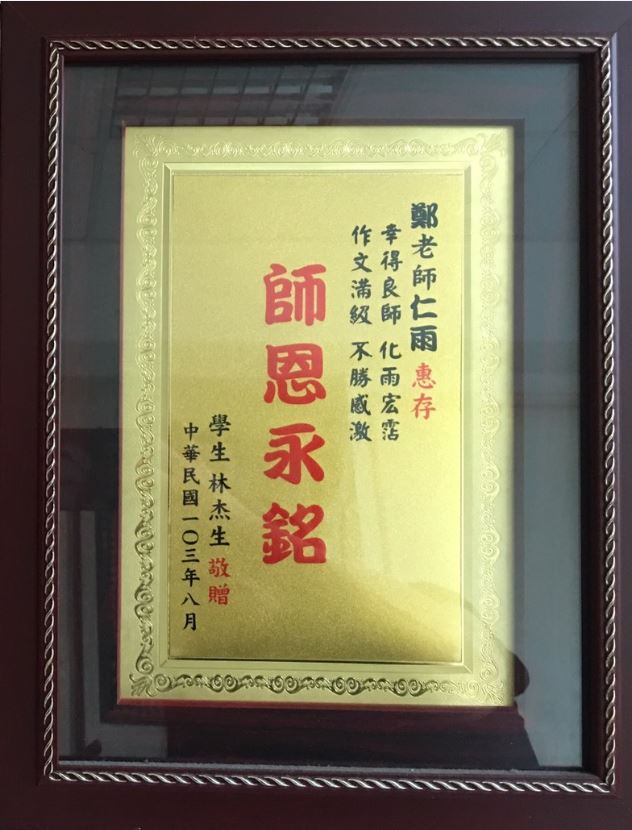 鄭老師仁雨 惠存
幸得良師 化雨宏霑
作文滿級 不勝感激
師恩永銘
學生 林杰生 敬贈
中華民國一〇三年八月